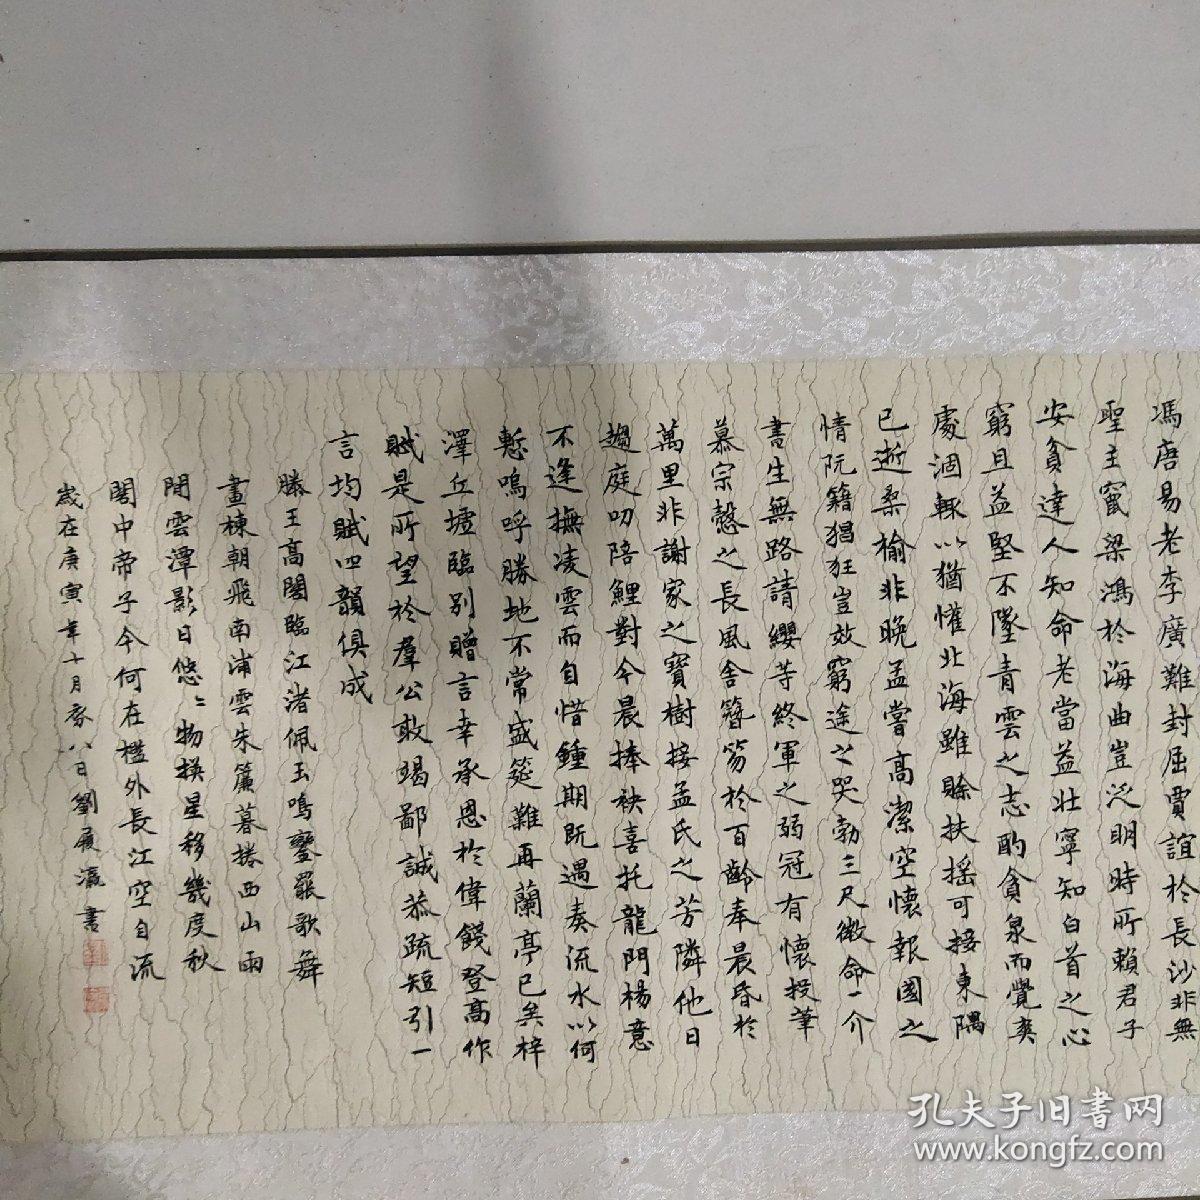 馮唐易老李廣難封屈賈誼於長沙非無
聖主竄梁鴻於海曲豈泛明時所賴君子
安貧達人知命老當益壯寧知白首之心
窮且益堅不墜青雲之志酌貪泉而覺爽
處涸轍以猶懽北海雖賒扶搖可接東隅
已逝桑榆非晚孟嘗高潔空懷報國之
情阮籍猖狂豈效窮途之哭勃三尺微命一介
書生無路請纓等終軍之弱冠有懷投筆
慕宗愨之長風舍簪笏於百齡奉晨昏於
萬里非謝家之寶樹接孟氏之芳隣他日
趨庭叨陪鯉對今晨捧袂喜托龍門楊意
不逢撫凌雲而自惜鍾期既遇奏流水以何
慙嗚呼勝地不常盛筵難再蘭亭已矣梓
澤丘墟臨別贈言幸承恩於偉餞登高作
賦是所望於羣公敢竭鄙誠恭疏短引一
言均賦四韻俱成
滕王高閣臨江渚佩玉鳴鑾罷歌舞
畫棟朝飛南浦雲朱簾暮捲西山雨
閒雲潭影日悠〻物換星移幾度秋
閣中帝子今何在檻外長江空自流
歲在庚寅年十月八日劉瀛書
孔夫子旧書网
www.kongfz.com